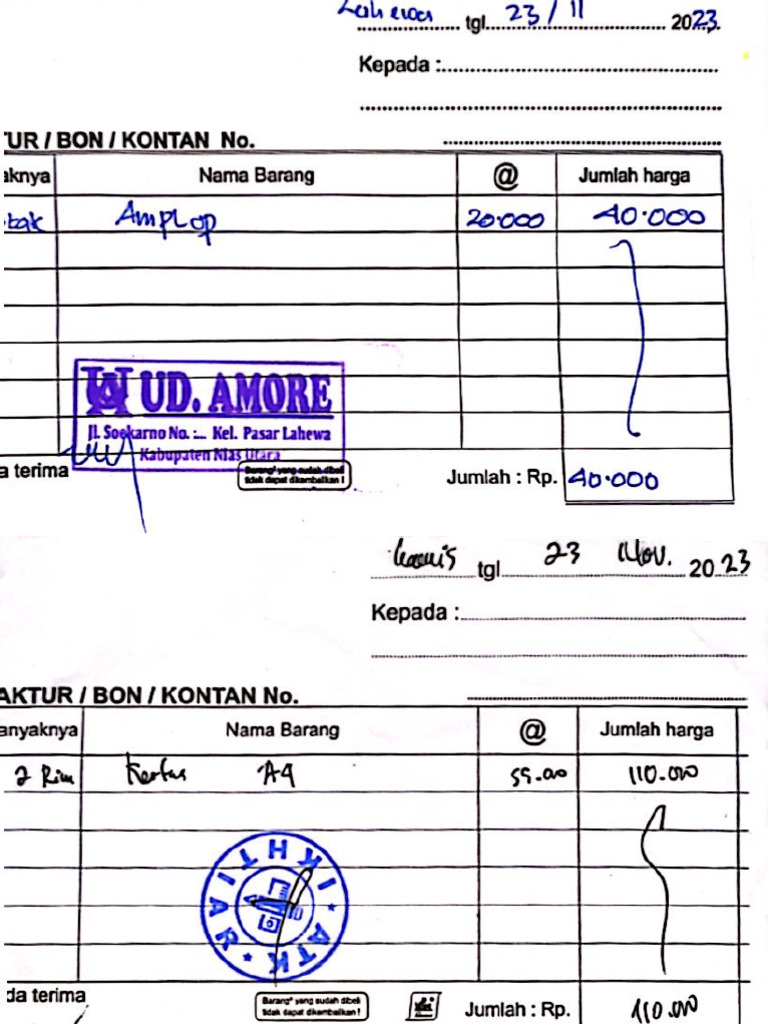 Lahewa tgl 23/11 2023
Kepada :
TUR / BON / KONTAN No.
aknya Nama Barang @ Jumlah harga
tak Amplop 20.000 40.000
UD. AMORE
Jl. Soekarno No. :... Kel. Pasar Lahewa
Kabupaten Nias Utara
a terima Barang² yang sudah dibeli Jumlah : Rp. 40.000
tidak dapat dikembalikan !
Kamis tgl 23 Nov. 2023
Kepada :
AKTUR / BON / KONTAN No.
anyaknya Nama Barang @ Jumlah harga
2 Rim Kertas A4 55.000 110.000
IKHTIAR
ATK
da terima Barang² yang sudah dibeli Jumlah : Rp. 110.000
tidak dapat dikembalikan !